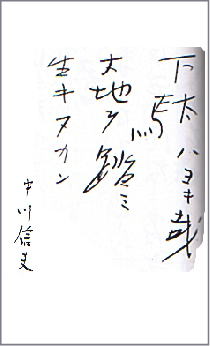 下駄ハヨキ哉
大地ヲ踏ミ
生キヌカン
中川信夫